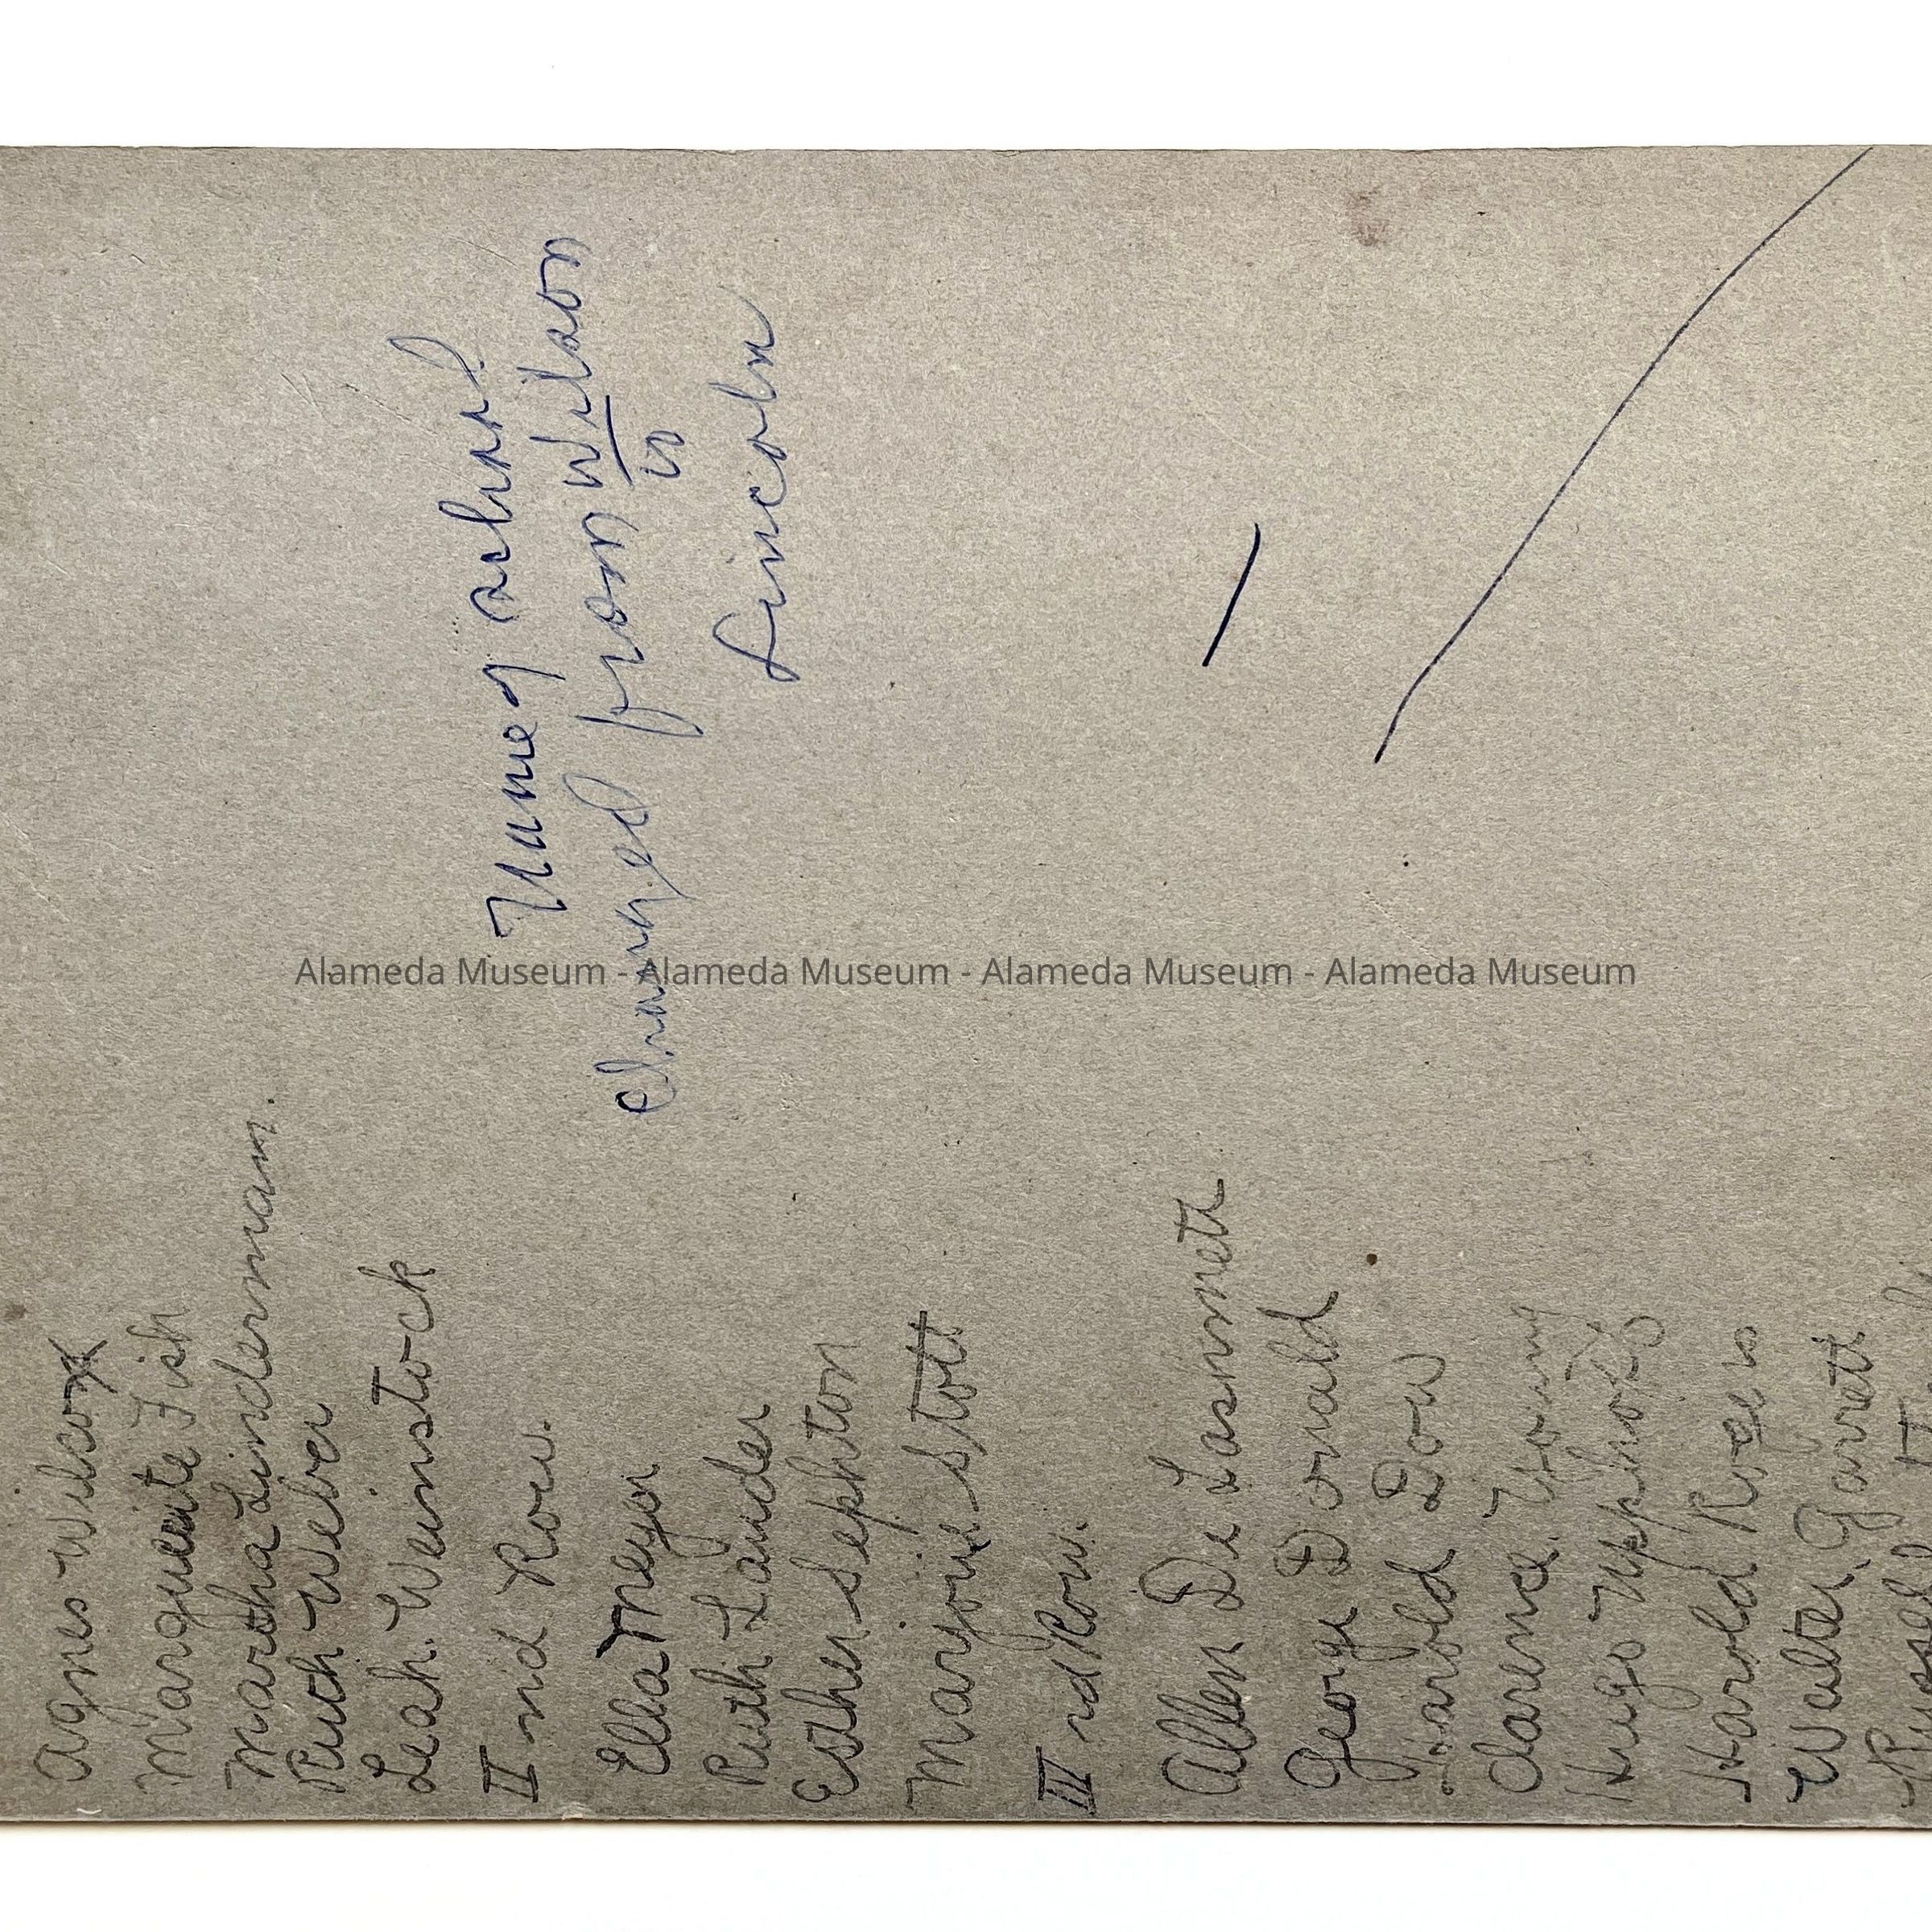 Agnes Wilcox
Marguerite Fish
Martha Linderman.
Ruth Weber
Leah Weinstock
II nd Row.
Ella Meyer
Ruth Lauder
Esther Sephton
Marjorie Stott
III rd Row.
Allen De Lasmeth
George Donald
Harold Dow
Clarence Young
Hugo Upphoff
Harold Rogers
Walter Garrett
Russel
Name of school
changed from Wilson
to
Lincoln
Alameda Museum - Alameda Museum - Alameda Museum - Alameda Museum